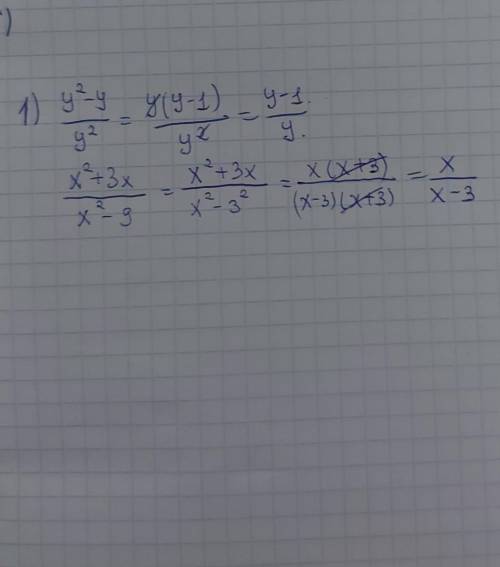 )
1) (y²-y)/y² = y(y-1)/y² = (y-1)/y.
(x²+3x)/(x²-9) = (x²+3x)/(x²-3²) = x(x+3)/((x-3)(x+3)) = x/(x-3)